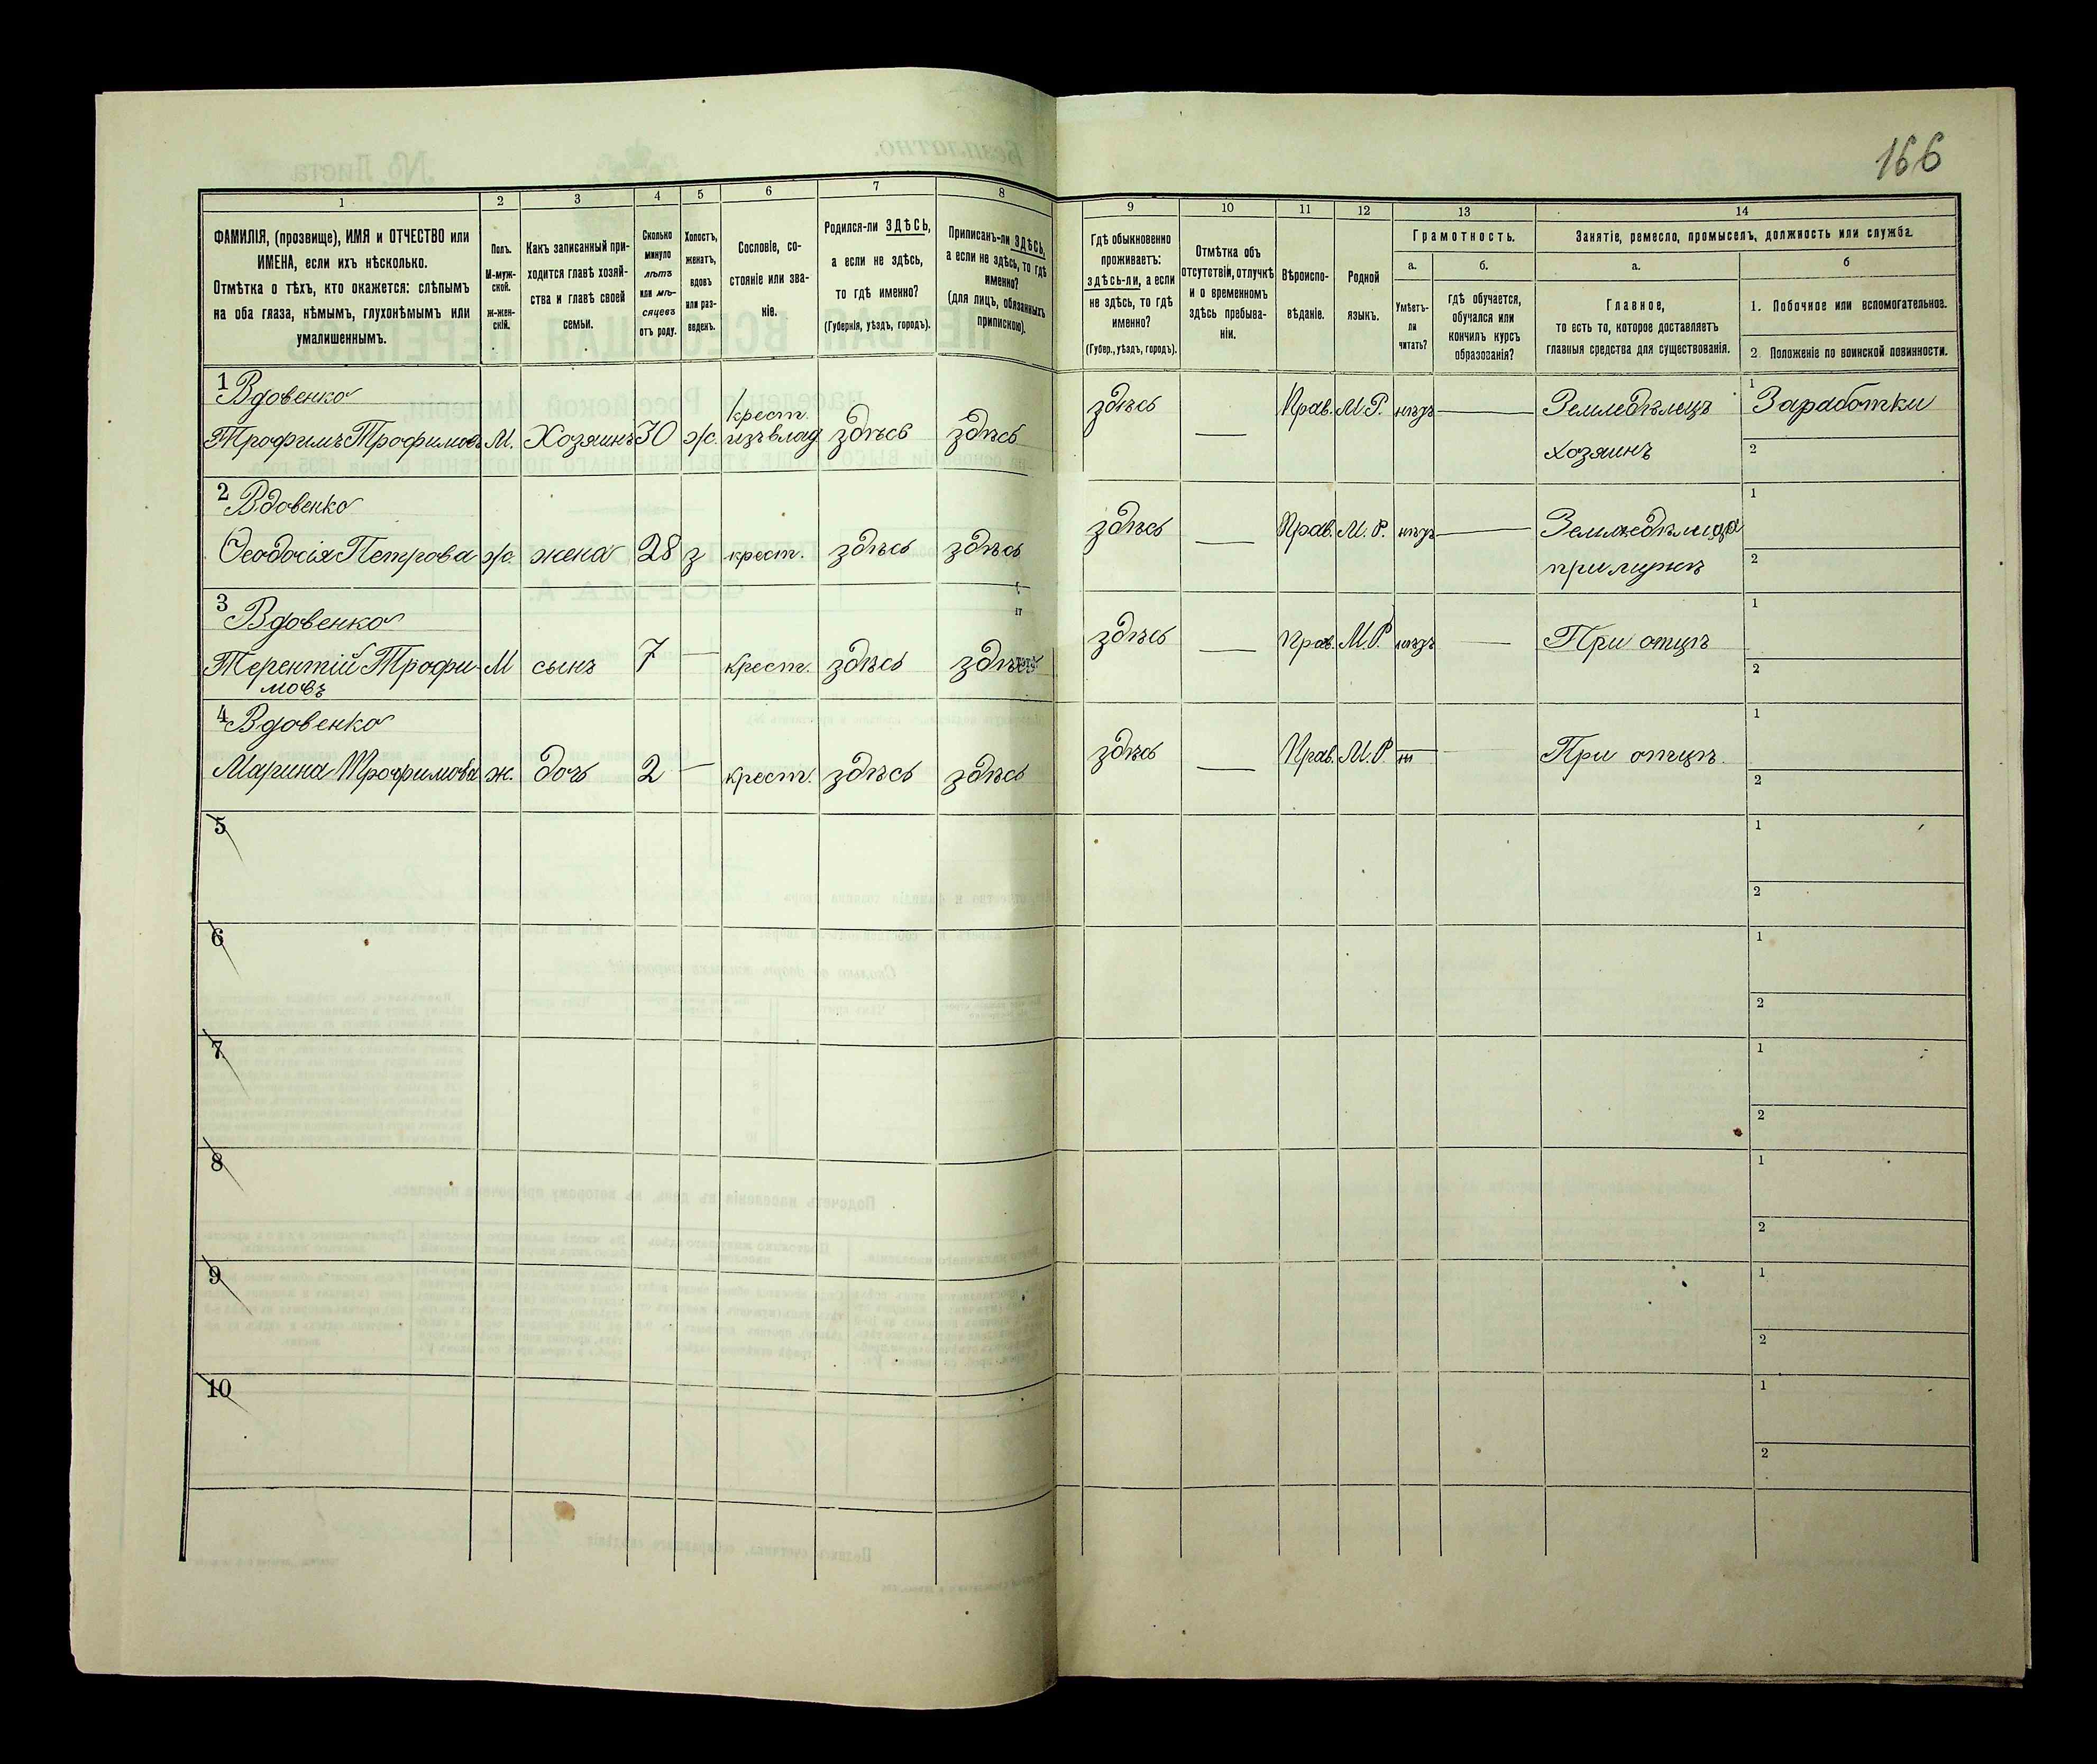 166
1
2
3
4
5
6
7
8
9
10
11
12
13
14
ФАМИЛІЯ, (прозвище), ИМЯ и ОТЧЕСТВО или
ИМЕНА, если ихъ нѣсколько.
Отмѣтка о тѣхъ, кто окажется: слѣпымъ
на оба глаза, нѣмымъ, глухонѣмымъ или
умалишеннымъ.
Полъ.
М-муж-
ской.
ж-жен-
скій.
Какъ записанный при-
ходится главѣ хозяй-
ства и главѣ своей
семьи.
Сколько
минуло
лѣтъ
или мѣ-
сяцевъ
отъ роду.
Холостъ,
женатъ,
вдовъ
или раз-
веденъ.
Сословіе, со-
стояніе или зва-
ніе.
Родился-ли ЗДѢСЬ,
а если не здѣсь,
то гдѣ именно?
(Губернія, уѣздъ, городъ).
Приписанъ-ли ЗДѢСЬ,
а если не здѣсь, то гдѣ
именно?
(для лицъ, обязанныхъ
припискою).
Гдѣ обыкновенно
проживаетъ:
здѣсь-ли, а если
не здѣсь, то гдѣ
именно?
(Губер., уѣздъ, городъ).
Отмѣтка объ
отсутствіи, отлучкѣ
и о временномъ
здѣсь пребыва-
ніи.
Вѣроиспо-
вѣданіе.
Родной
языкъ.
Грамотность.
а.
Умѣетъ-
ли
читать?
б.
гдѣ обучается,
обучался или
кончилъ курсъ
образованія?
Занятіе, ремесло, промыселъ, должность или служба.
а.
Главное,
то есть то, которое доставляетъ
главныя средства для существованія.
б
1. Побочное или вспомогательное.
2 Положеніе по воинской повинности.
1 Вдовенко
Трофимъ Трофимовъ М. Хозяинъ 30 ж. крест. изъ влад здѣсь здѣсь здѣсь — Прав. М.Р. нѣтъ — Земледѣлецъ 1 Заработки
хозяинъ 2
2 Вдовенко
Ѳеодосія Петрова ж. жена 28 з крест. здѣсь здѣсь здѣсь — Прав. М.Р. нѣтъ — Земледѣлица 1
при мужѣ 2
3 Вдовенко
Терентій Трофи- М сынъ 7 — крест. здѣсь здѣсь здѣсь — Прав. М.Р. нѣтъ — При отцѣ 1
мовъ 2
4 Вдовенко
Марина Трофимова ж. дочь 2 — крест. здѣсь здѣсь здѣсь — Прав. М.Р — При отцѣ. 1
2
5 1
2
6 1
2
7 1
2
8 1
2
9 1
2
10 1
2